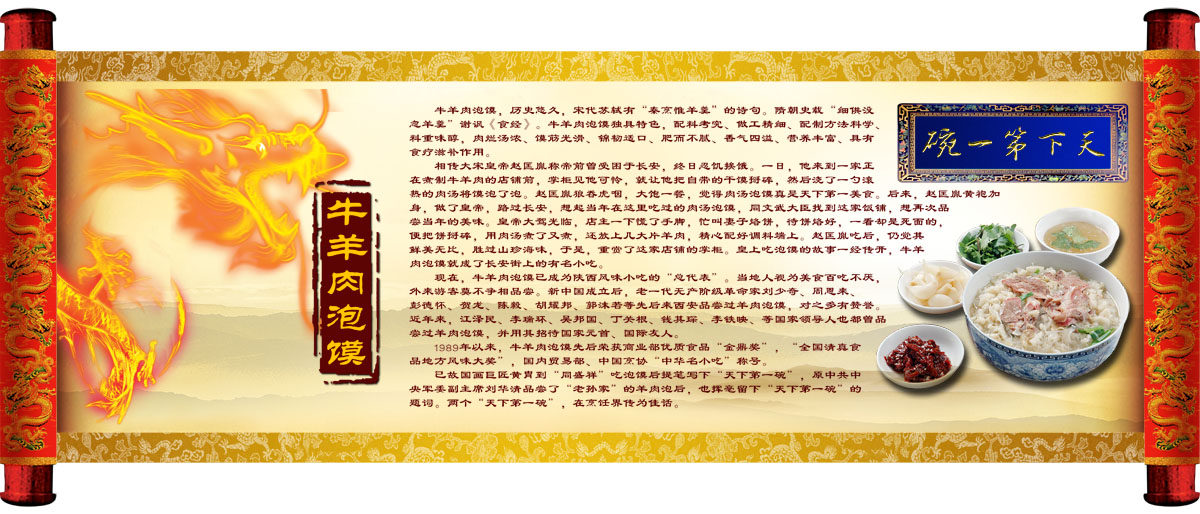 牛羊肉泡馍
牛羊肉泡馍，历史悠久，宋代苏轼有“秦烹惟羊羹”的诗句。隋朝史载“细供没
忽羊羹”谢讽《食经》。牛羊肉泡馍独具特色，配料考究、做工精细、配制方法科学、
料重味醇，肉烂汤浓、馍筋光滑、锦韧适口、肥而不腻、香气四溢、营养丰富、具有
食疗滋补作用。
相传大宋皇帝赵匡胤称帝前曾受困于长安，终日忍饥挨饿。一日，他来到一家正
在煮制牛羊肉的店铺前，掌柜见他可怜，就让他把自带的干馍掰碎，然后浇了一勺滚
热的肉汤将馍泡了泡。赵匡胤狼吞虎咽，大饱一餐，觉得肉汤泡馍真是天下第一美食。后来，赵匡胤黄袍加
身，做了皇帝，路过长安，想起当年在这里吃过的肉汤泡馍，同文武大臣找到这家饭铺，想再次品
尝当年的美味。皇帝大驾光临，店主一下慌了手脚，忙叫妻子烙饼，待饼烙好，一看却是死面的，
便把饼掰碎，用肉汤煮了又煮，还放上几大片羊肉，精心配好调料端上。赵匡胤吃后，仍觉其
鲜美无比，胜过山珍海味，于是，重赏了这家店铺的掌柜。皇上吃泡馍的故事一经传开，牛羊
肉泡馍就成了长安街上的有名小吃。
现在，牛羊肉泡馍已成为陕西风味小吃的“总代表”。当地人视为美食百吃不厌，
外来游客莫不争相品尝。新中国成立后，老一代无产阶级革命家刘少奇、周恩来、
彭德怀、贺龙、陈毅、胡耀邦、郭沫若等先后来西安品尝过羊肉泡馍，对之多有赞誉。
近年来，江泽民、李瑞环、吴邦国、丁关根、钱其琛、李铁映、等国家领导人也都曾品
尝过羊肉泡馍，并用其招待国家元首、国际友人。
1989年以来，牛羊肉泡馍先后荣获商业部优质食品“金鼎奖”，“全国清真食
品地方风味大奖”，国内贸易部、中国烹协“中华名小吃”称号。
已故国画巨匠黄胄到“同盛祥”吃泡馍后提笔写下“天下第一碗”，原中共中
央军委副主席刘华清品尝了“老孙家”的羊肉泡后，也挥毫留下“天下第一碗”的
题词。两个“天下第一碗”，在烹饪界传为佳话。
碗一第下天